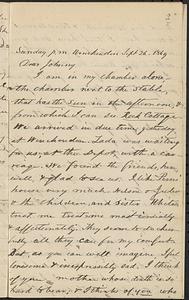 Sunday p.m. Winchendon Sept 26. 1869
Dear Johnny
I am in my chamber alone—
the chamber next to the Stable,
that has the Sun in the afternoon &
from which I can see Red Cottage.
We arrived in due time, yesterday
at Winchendon. Lada was waiting
for us at the Depot, with a car
riage. We found the friends here
well, & glad to see us. I like
house very much. Nelson &
& the children, and Sister
treat me most cordially
& affectionately. They seem to do
all they can for my comfort.
But, as you can well imagine, I feel
lonesome & inexpressibly sad. I think
of your mother whose
hard to bear, & I think of you who